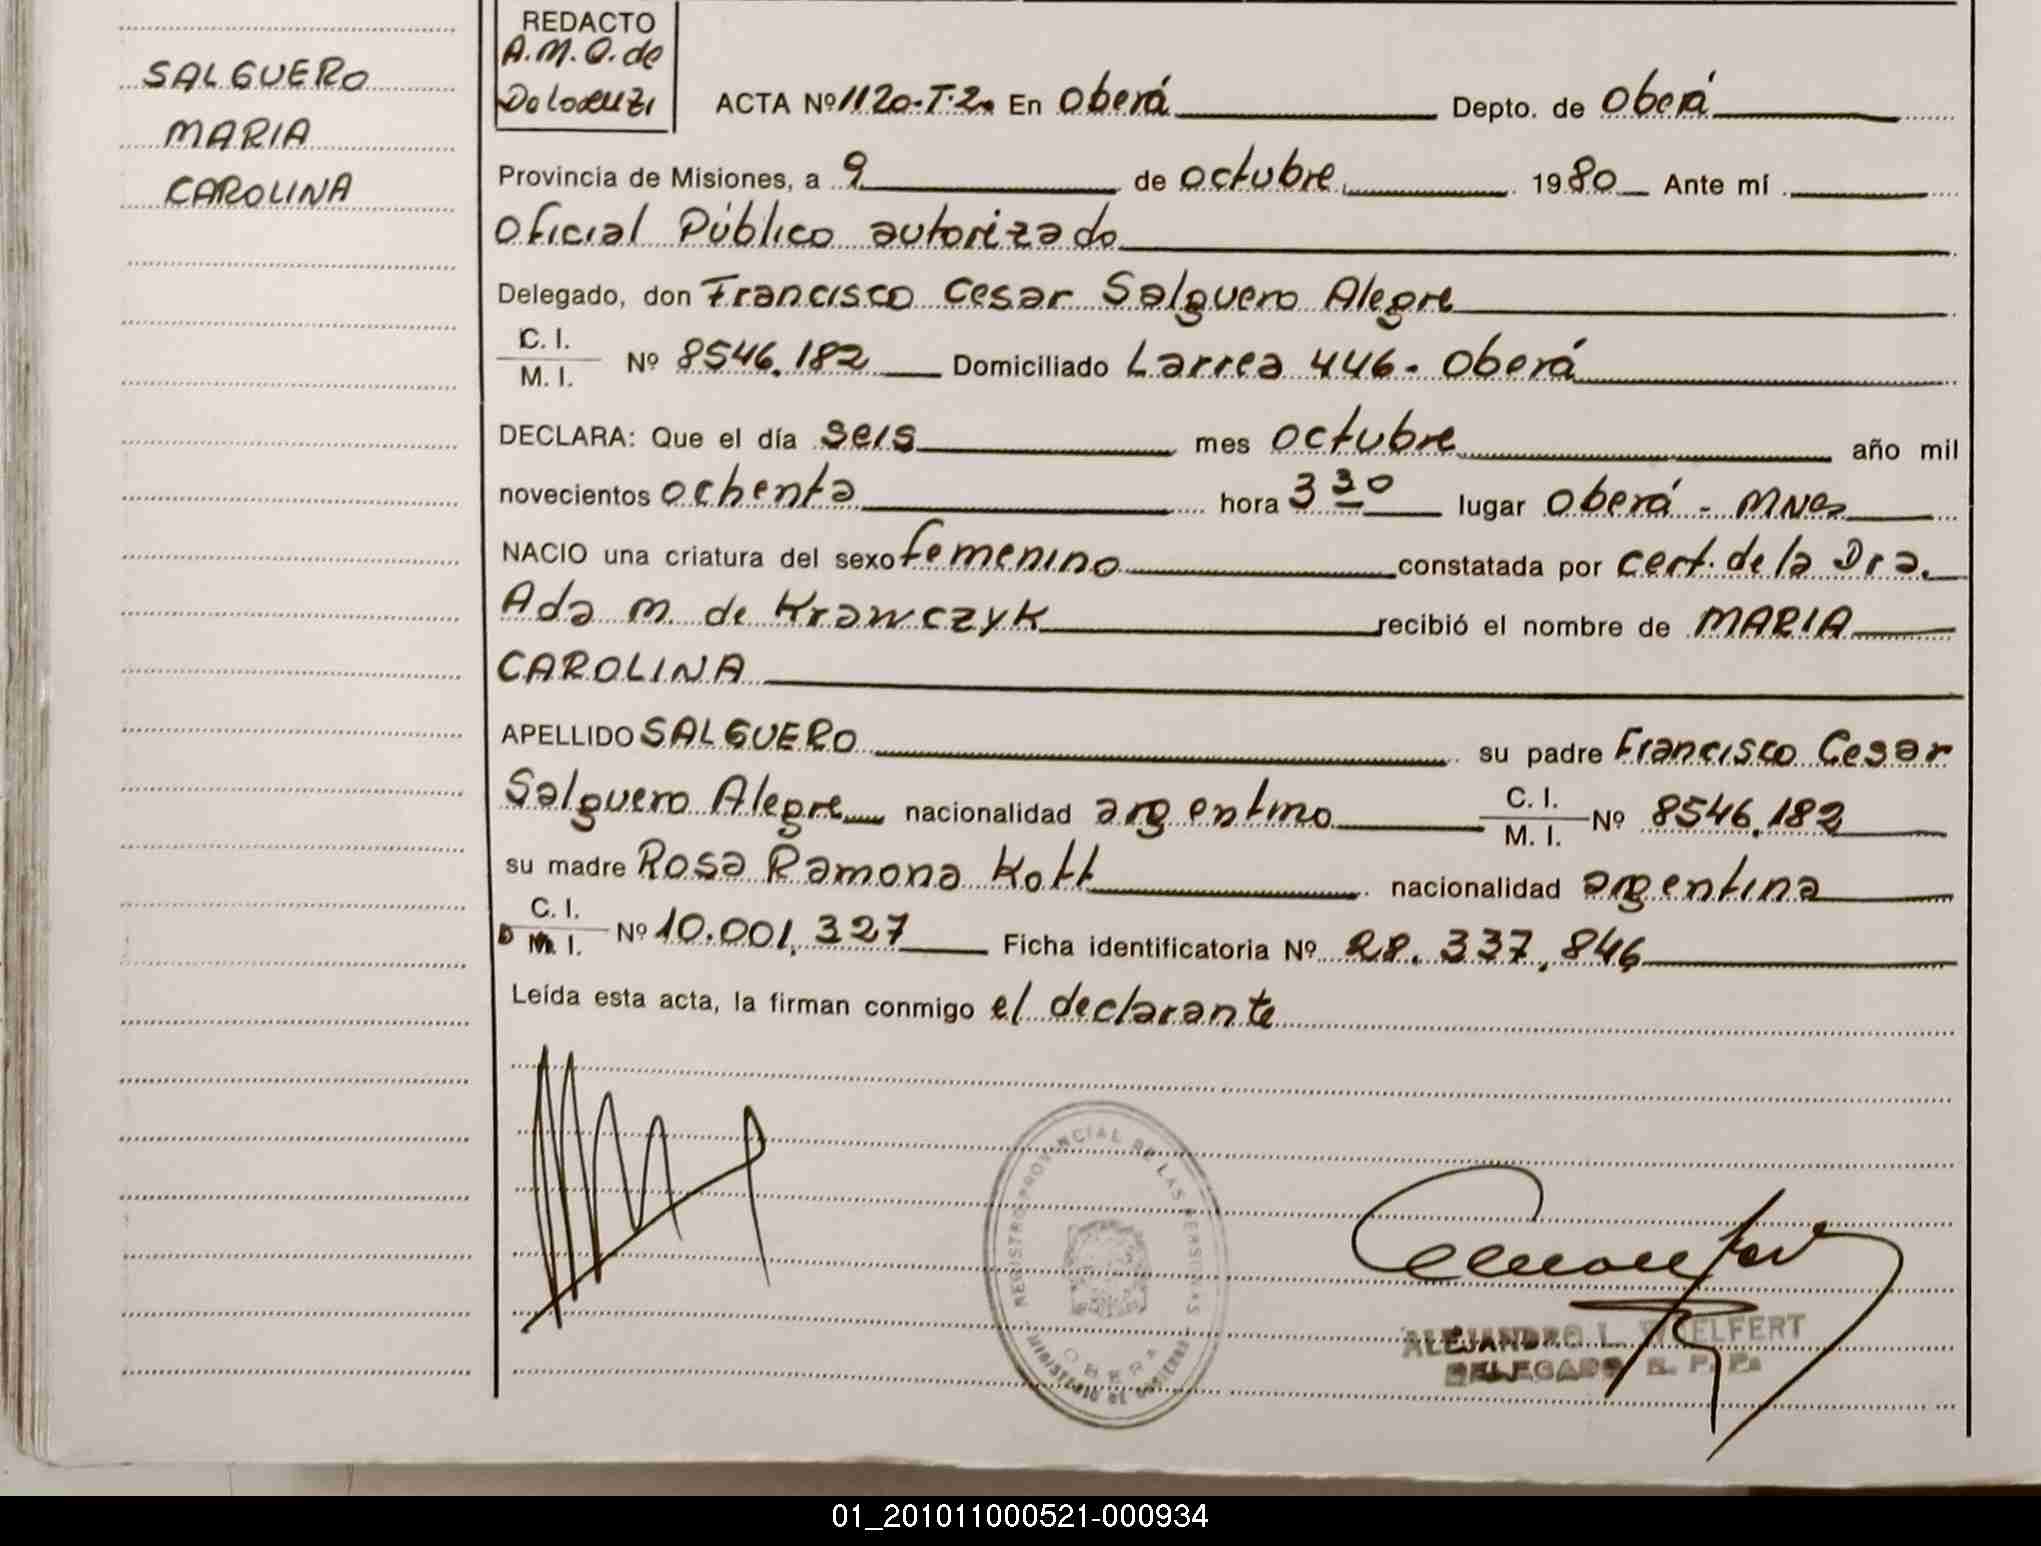 SALGUERO
MARIA
CAROLINA
REDACTO
A.M.O. de
ACTA Nº 1120-T.2. En Oberá Depto. de Oberá
Provincia de Misiones, a 9 de octubre 1980 Ante mí
Oficial Público autorizado
Delegado, don Francisco Cesar Salguero Alegre
C. I.
M. I. Nº 8546.182 Domiciliado Larrea 446 - Oberá
DECLARA: Que el día seis mes octubre año mil
novecientos ochenta hora 3 30 lugar Oberá - Mnes
NACIO una criatura del sexo femenino constatada por cert. de la Dra.
Ada M. de Krawczyk recibió el nombre de MARIA
CAROLINA
APELLIDO SALGUERO su padre Francisco Cesar
Salguero Alegre nacionalidad argentino C. I. M. I. Nº 8546.182
su madre Rosa Ramona Kott nacionalidad argentina
C. I.
D M. I. Nº 10.001.327 Ficha identificatoria Nº 28.337.846
Leída esta acta, la firman conmigo el declarante
REGISTRO PROVINCIAL DE LAS PERSONAS
MINISTERIO DE GOBIERNO
OBERA
ALEJANDRO L. WOELFERT
DELEGADO R. P. P.
01_201011000521-000934